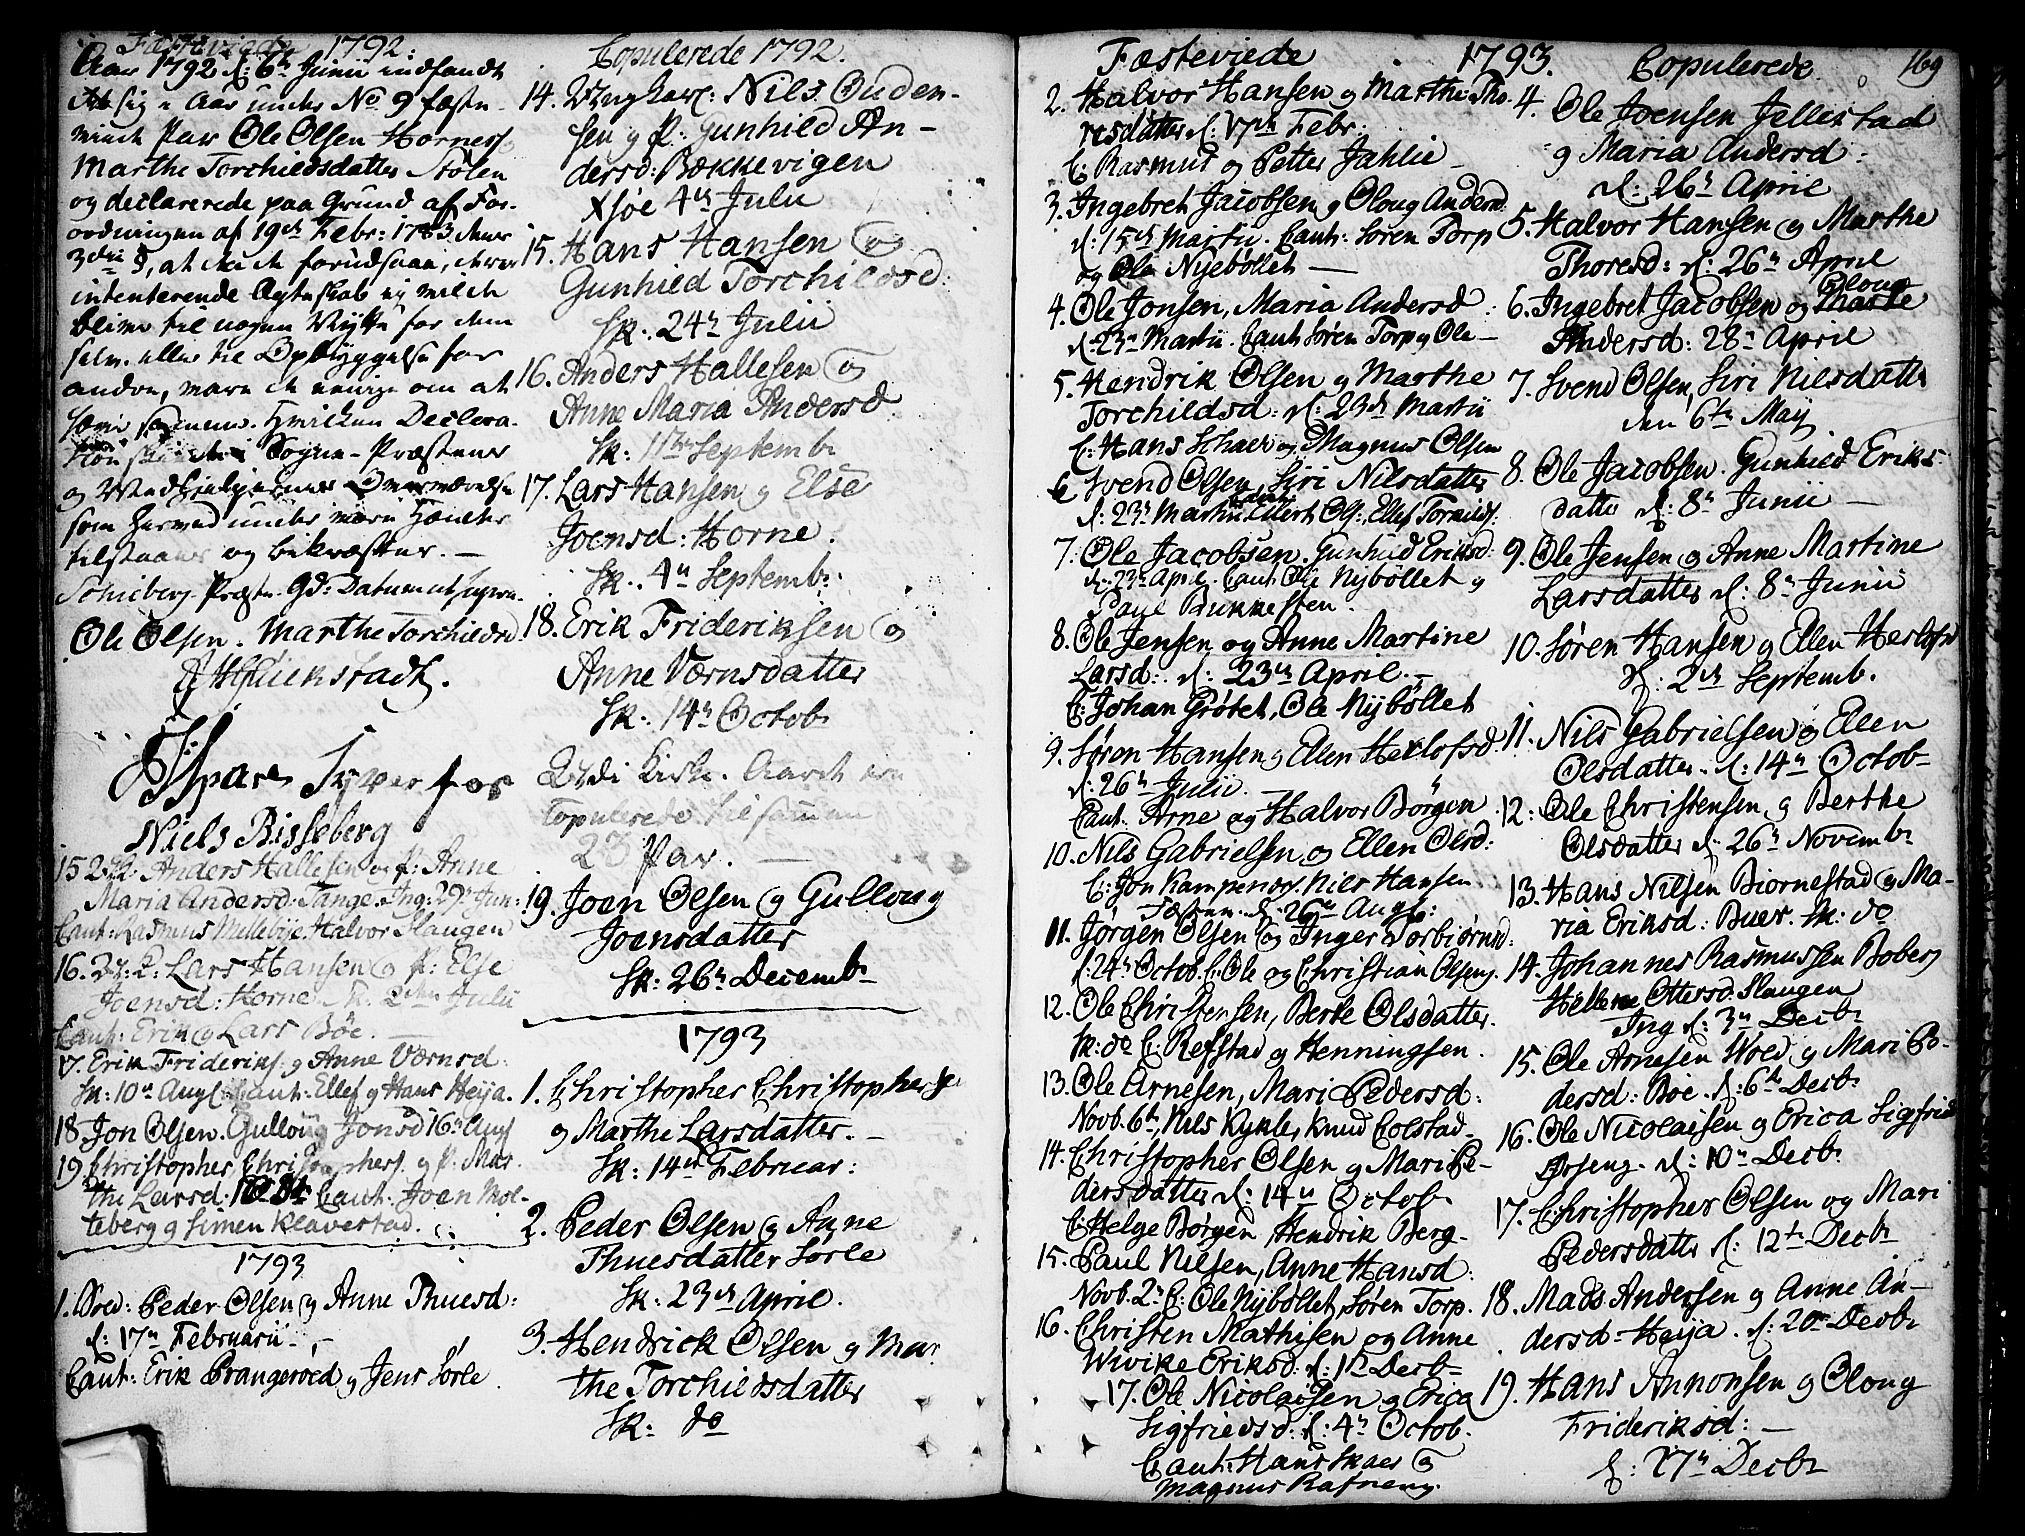 Fæsteviede 1792.
Aar 1792 d: 6te Junii indfandt
sig i Aar under No 9 fæste-
Par Ole Olsen Hornes
Marthe Torchildsdatter Stølen
og declarerede paa Grund af For-
ordningen af 19de Febr: 1783
3die §, at de forudsaae, deres
intenterende Ægteskab ej
blive til nogen Nytte for dem
selv eller til Opbyggelse for
andre, vare de eenige om at
hæve samme. Hvilken Declara-
tion skeede i Sogne-Præstens
og Medhielpernes Overværelse
som hermed under vore Hænder
tilstaaes og bekræftes. —
Schieberg Præstegd: Datum ut supra.
Ole Olsen. Marthe Torchildsd
Niels Bisseberg
15 Anders Hallesen og p: Anne
Maria Andersd: Tange. Ing: 29 Jun:
Caut: Rasmus Mellebye Halvor Slangen
16. Lars Hansen og p: Else
Joensd: Horne Sk. Julii
Caut: Erik og Lars Bøe. —
17. Erik Frideriks. og Anne Værnsd:
Sk: 10de Aug Caut: Ellef og Hans Heija.
18 Jon Olsen. Gulloug Jonsd 16de Aug
19 Christopher Christophers. og p. Mar-
the Larsd: Caut. Joen Mol-
teberg og Simen Klavestad.
1793
1. Peder Olsen og Anne Thuesd:
d: 17de Februarii. —
Caut: Erik Prangeroed og Jens Sørle
Copulerede 1792.
14. Ungkarl: Nils Ouden-
sen og p. Gunhild An-
dersd: Bækkevigen
4de Julii
15. Hans Hansen og
Gunhild Torchildsd:
Sk: 24de Julii
16. Anders Hallesen og
Anne Maria Andersd.
Sk: 11te Septemb.
17. Lars Hansen og Else
Joensd: Horne.
Sk. 4de Septemb:
18. Erik Frideriksen og
Anne Værnsdatter
Sk: 14de Octob.
di Kirke. Aaret
Copulerede tilsammen
23 Par. —
19. Joen Olsen og Gulloug
Joensdatter
Sk: 26de Decemb.
1793
1. Christopher Christophers.
og Marthe Larsdatter. —
Sk: 14de Februar:
2. Peder Olsen og Anne
Thuesdatter Sørle
Sk: 23de April.
3. Hendrick Olsen og Mar-
the Torchildsdatter
Sk: do
Fæsteviede 1793. Copulerede 169
2. Halvor Hansen og Marthe Tho-
resdatter d: 17de Febr.
C: Rasmus og Petter Jahlie —
3. Ingebret Jacobsen og Oloug Andersd:
d: 15de Martii. Caut: Søren Torp
og Ole Nyebøllet —
4. Ole Jonsen, Maria Andersd
d: 23de Martii. Caut Søren Torp og Ole —
5. Hendrik Olsen og Marthe
Torchildsd: d: 23de Martii
C: Hans Schaer og Magnus Olsen
6 Svend Olsen, Siri Nilsdatter
d: 23de Martii Ellert Ols:, Ellef
7. Ole Jacobsen. Gunhild Eriksd:
d: 23de April. Caut. Ole Nybøllet og
Paye Bukkesten.
8. Ole Jensen og Anne Martine
Larsd: d: 23de April. —
C: Johan Grøtet, Ole Nybøllet
9. Søren Hansen og Ellen Herlofsd.
d: 26de Julii. —
Caut. Arne og Halvor Børgen
10. Nils Gabrielsen og Ellen Olsd:
C: Jon Kampenes. Nils Hansen
d: 26de Aug:
11. Jørgen Olsen og Inger Torbiørnsd:
d: 24de Octob. C: Ole og Christian Olseng.
12. Ole Christensen, Berte Olsdatter.
Sk: do C: Refstad og Henningsen.
13. Ole Arnesen, Mari Pedersd:
Novb. 6te, Nils Kykle, Knud Colstad.
14. Christopher Olsen og Mari Pe-
dersdatter d: 14de Octob.
C: Helge Børgen, Hendrik Berg.
15. Paul Nilsen, Anne Hansd:
Novb. 2de C: Ole Nybøllet, Søren Torp.
16. Christen Mathisen og Anne
Wivike Eriksd: d: 1te Decb.
17. Ole Nicolaisen og Erica
Sigfriedsd: d: 4de Octob.
Caut: Hans Skaer og
Magnus Rafneng.
4. Ole Joensen Jellestad
og Maria Andersd:
d: 26de April
5. Halvor Hansen og Marthe
Thoresd: d: 26de April
6. Ingebret Jacobsen og Marte Oloug
Andersd: 28de April
7. Svend Olsen, Siri Nilsdatter
den 6te Maij
8. Ole Jacobsen. Gunhild Eriks-
datter d: 8de Junii —
9. Ole Jensen og Anne Martine
Larsdatter d: 8de Junii
10. Søren Hansen og Ellen Herlofsd
d: 2de Septemb.
11. Nils Gabrielsen og Ellen
Olsdatter. d: 14de Octob.
12. Ole Christensen og Berthe
Olsdatter d: 26de Novemb.
13. Hans Nilsen Biørnestad og Ma-
ria Eriksd: Buer. Sk: do
14. Johannes Rasmussen Boberg
Hellene Ottersd. Slangen
Ing d: 3de Decb.
15. Ole Arnesen Woed og Mari Pe-
dersd: Bøe. d: 6te Decb.
16. Ole Nicolaisen og Erica Sigfried
Ørseng. d: 10de Decb.
17. Christopher Olsen og Mari
Pedersdatter d: 12te Decb.
18. Mads Andersen og Anne An-
dersd: Heija. d: 20de Decb.
19. Hans Annonsen og Oloug
Frideriksd: —
d: 27de Decb.